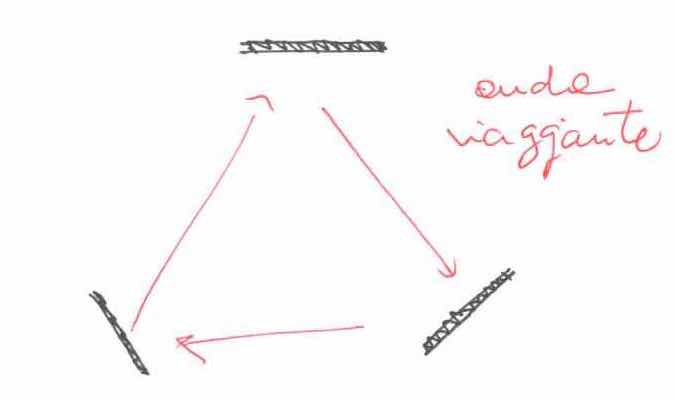 onda
viaggiante